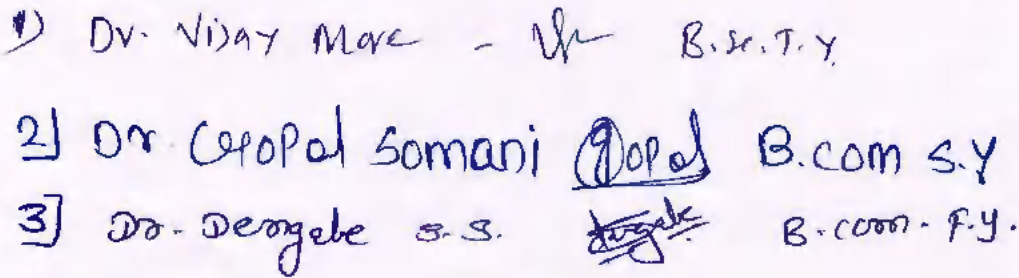 1) Dr. Vijay More - B.Sc. T.Y
2] Dr. Gopal Somani Gopal B.com S.Y
3] Dr. Dengale S.S. B.com. F.Y.